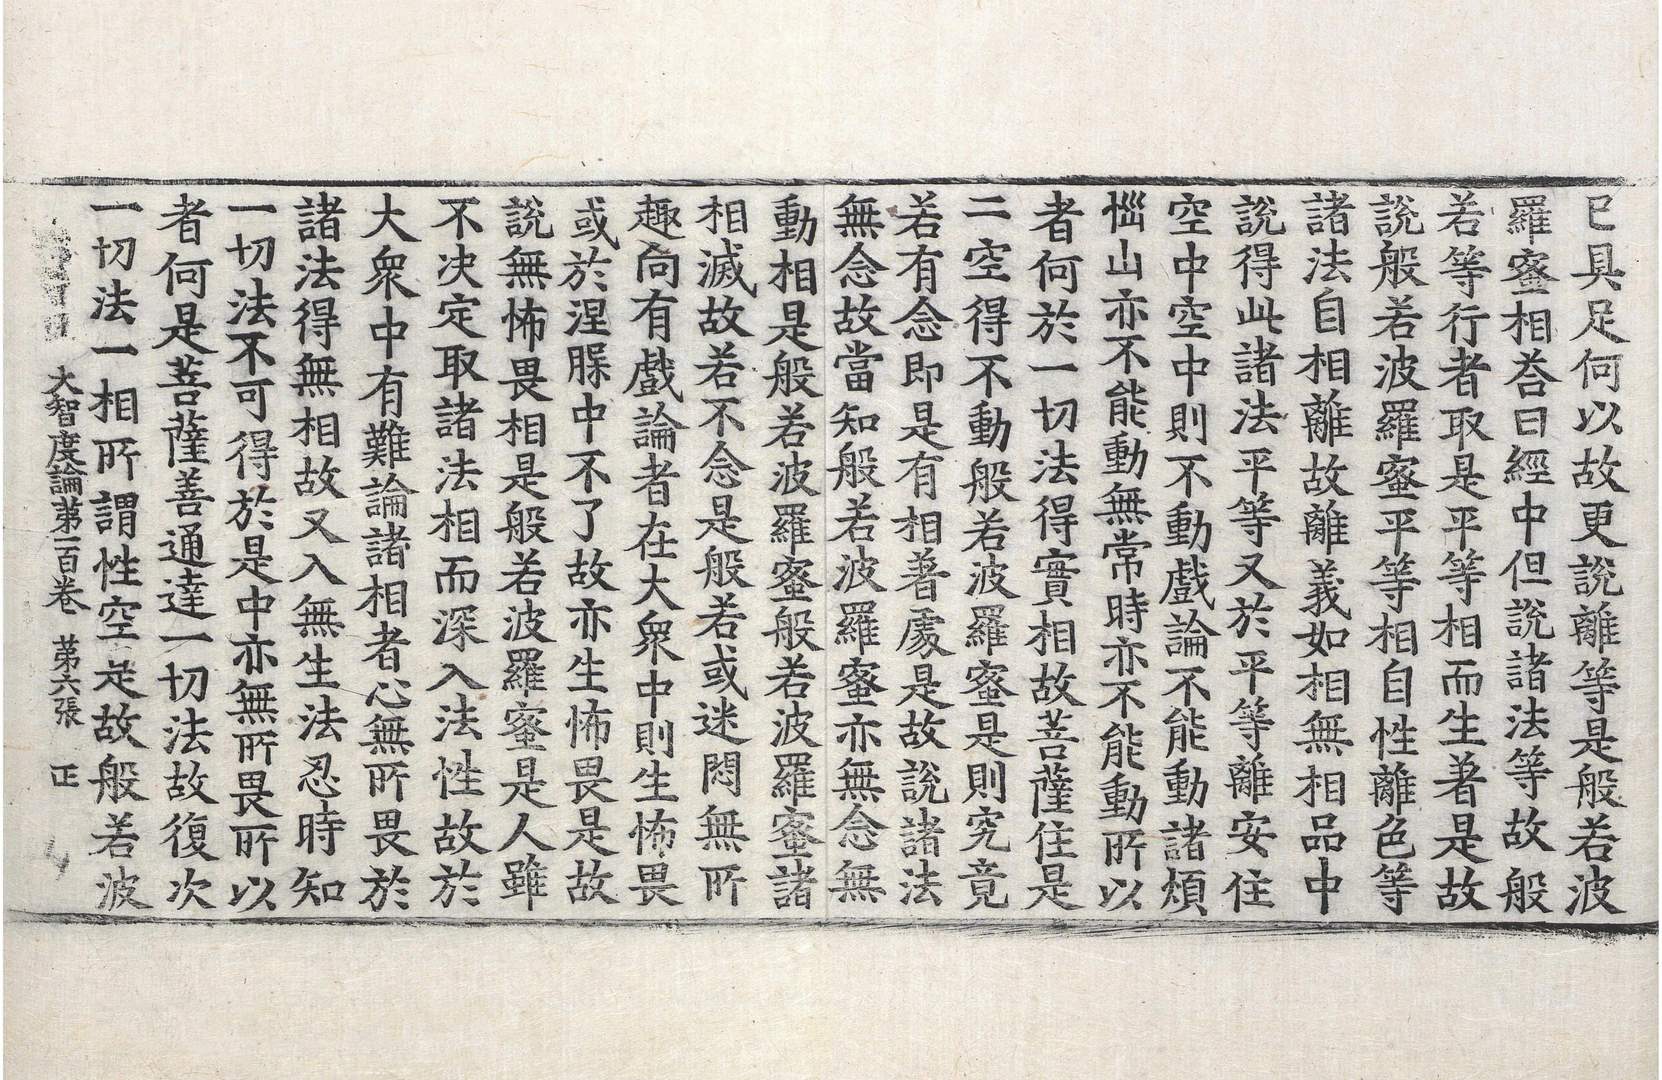 已具足何以故更說離等是般若波
羅蜜相荅曰經中但說諸法等故般
若等行者取是平等相而生著是故
說般若波羅蜜平等相自性離色等
諸法自相離故離義如相無相品中
說得此諸法平等又於平等離安住
空中空中則不動戲論不能動諸煩
惱山亦不能動無常時亦不能動所以
者何於一切法得實相故菩薩住是
二空得不動般若波羅蜜是則究竟
若有念即是有相著處是故說諸法
無念故當知般若波羅蜜亦無念無
動相是般若波羅蜜般若波羅蜜諸
相滅故若不念是般若或迷悶無所
趣向有戲論者在大衆中則生怖畏
或於涅槃中不了故亦生怖畏是故
說無怖畏相是般若波羅蜜是人雖
不决定取諸法相而深入法性故於
大衆中有難論諸相者心無所畏於
諸法得無相故又入無生法忍時知
一切法不可得於是中亦無所畏所以
者何是菩薩善通達一切法故復次
一切法一相所謂性空是故般若波
大智度論第一百卷 第六張 正